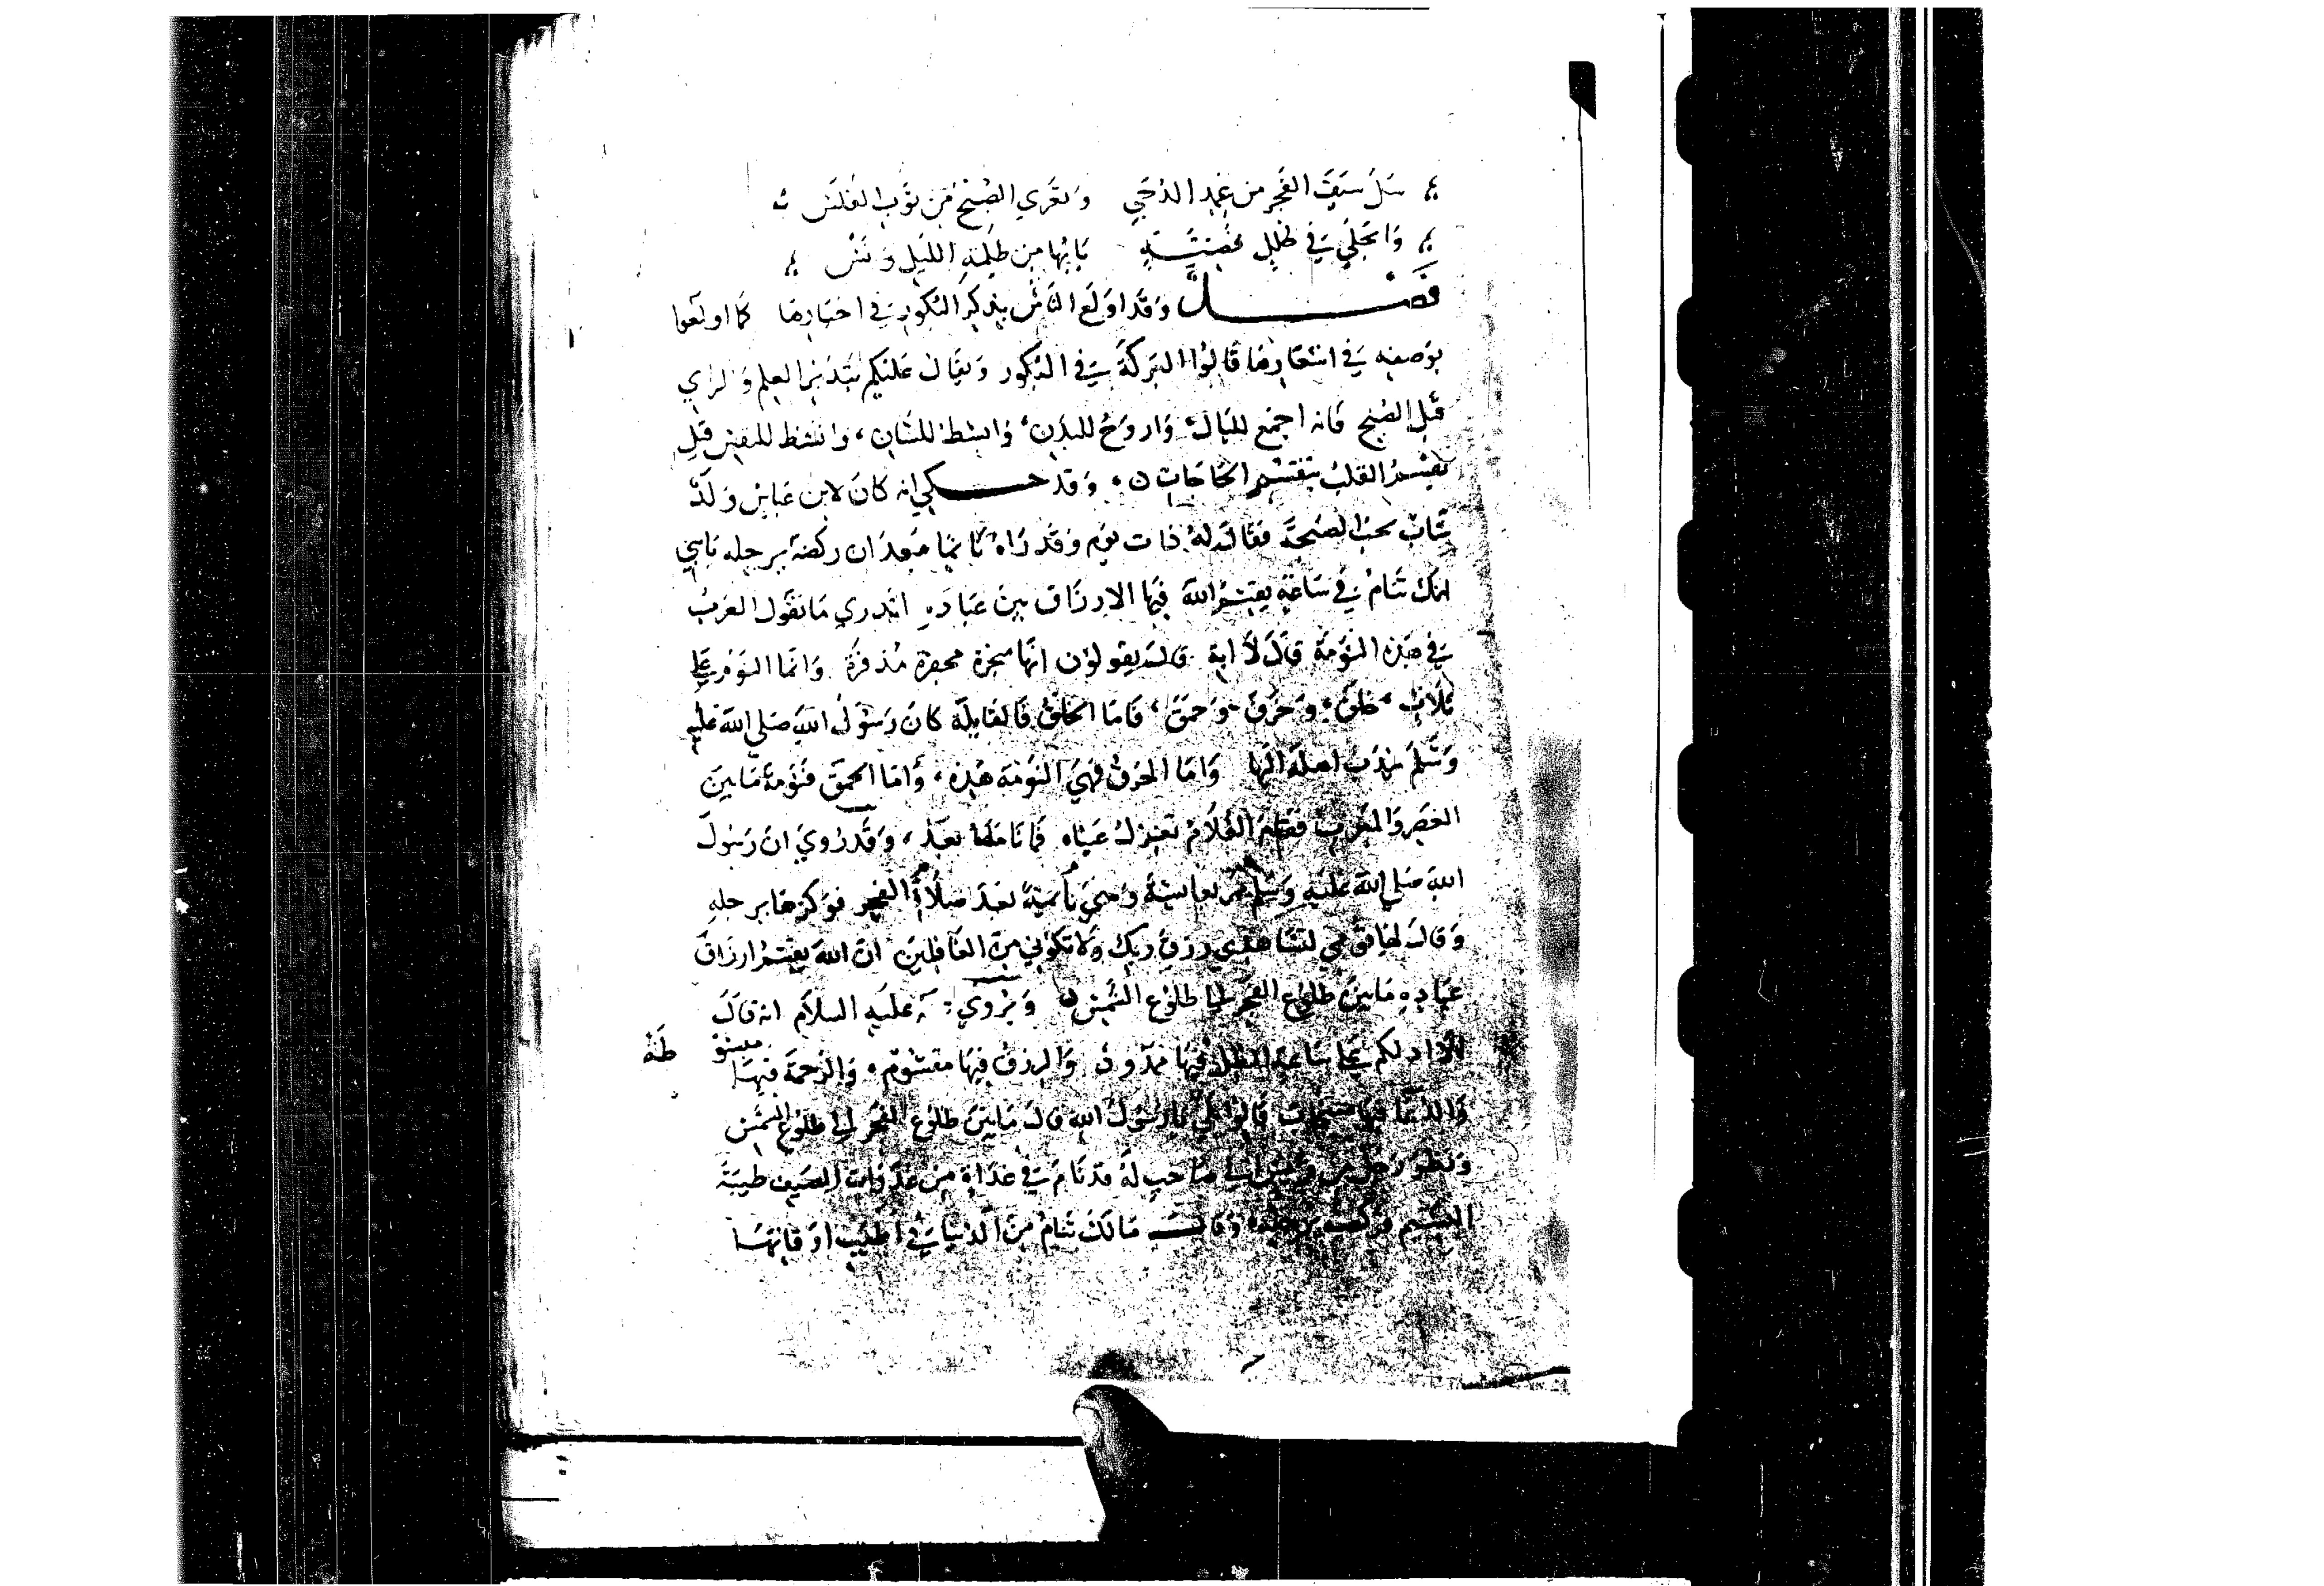 سَلَّ سَيفَ الفَجرِ من غِمدِ الدُجَي وَتعَرِي الصُبحُ مِن ثَوبِ الغَلَس
وَانجَلَي في حُلَلٍ فِضِّيَّةٍ مَا بِهَا مِن ظُلمَةِ اللَّيلِ دَنَس
فَصـــلٌ وَقَد اولَع النَاسُ بِذِكرِ البُكور في اخبَارِهَا كَمَا اولَعُوا
بوَصفِه في اشعَارِهَا قَالُوا البَركَةُ في البُكور وَيقَال عَليكم بتَدبير العِلم وَالراي
قَبل الصُبح فَانه اجمَع للبَال وَاروَحُ للبدَن وَابسَط للسَان وَانشَط للنفس قَبل
تقسمُ القَلب بتَقسم الحَاجَات وَقد حكي انه كَانَ لابن عَباس وَلَدٌ
شَابٌ يحب الصَبحَة فقَال لَهُ ذات يَوم وَقَد رَاهُ نَائمًا بَعدَ ان ركَضَهُ برجله يَابني
انكَ تَنَامُ في سَاعَةٍ يقسمُ اللهُ فيهَا الارزَاق بينَ عبَادَهِ اتَدري مَا تقُول العَربُ
في هَذه النَومَة قَالَ لَا ابة قَال يقولُون انهَا مبخرة محفرة مُذفرَة وَانمَا النَوم عَلي
ثلَاث خلق وَخرق وَحمق فَامَا الخلق فَالقَايلَة كَانَ رَسُولُ اللهِ صَلي اللهَ عَليهِ
وَسَلَّم يندَب اهلَهُ اليهَا وَامَا الخرق فهيَ النَومَة هَذِه وَامَا الحمق فنَومَةُ مَا بينَ
العَصر وَالمَغرِب الغُلَامُ عَينَاه فَما نَامَهَا بَعد وَقَد رُوِيَ انَ رَسُولَ
اللهِ صَلي اللهَ عَليهِ وَسَلم مَر بعَايشَةَ وَهيَ نَائمَةٌ بَعدَ صَلَاةِ الفَجر فوَكزهَا برجلهِ
وَقالَ لهَا قومي لتشَاهدي رزق رَبك وَلا تكوني من الغَافلينَ ان اللهَ يقسمُ ارزَاقَ
عبَادِهِ مَا بينَ طلُوع الفَجر الي طلُوع الشَمس وَيروي عَليهِ السلَام انه قالَ
ادلكم عَلي سَاعَةٍ الظل فيهَا ممدُود وَالرزق فيهَا مقسُوم وَالرَحمَة فيهَا مبسُوطَة
وَالدعَا فيهَا مستجَاب قَالوا بَلي يَا رسُول الله قالَ مَا بينَ طلُوع الفَجر الي طلُوع الشَمس
وَنظَر رَجل من الي صَاحبٍ لَهُ قد نَامَ في غدَاةٍ من غدَوات الصَيف طيبَة
النَسيم فركضه برجلِه وَقَال مَا لكَ تنَامُ منَ الدنيا في اطيَب اوقَاتهَا